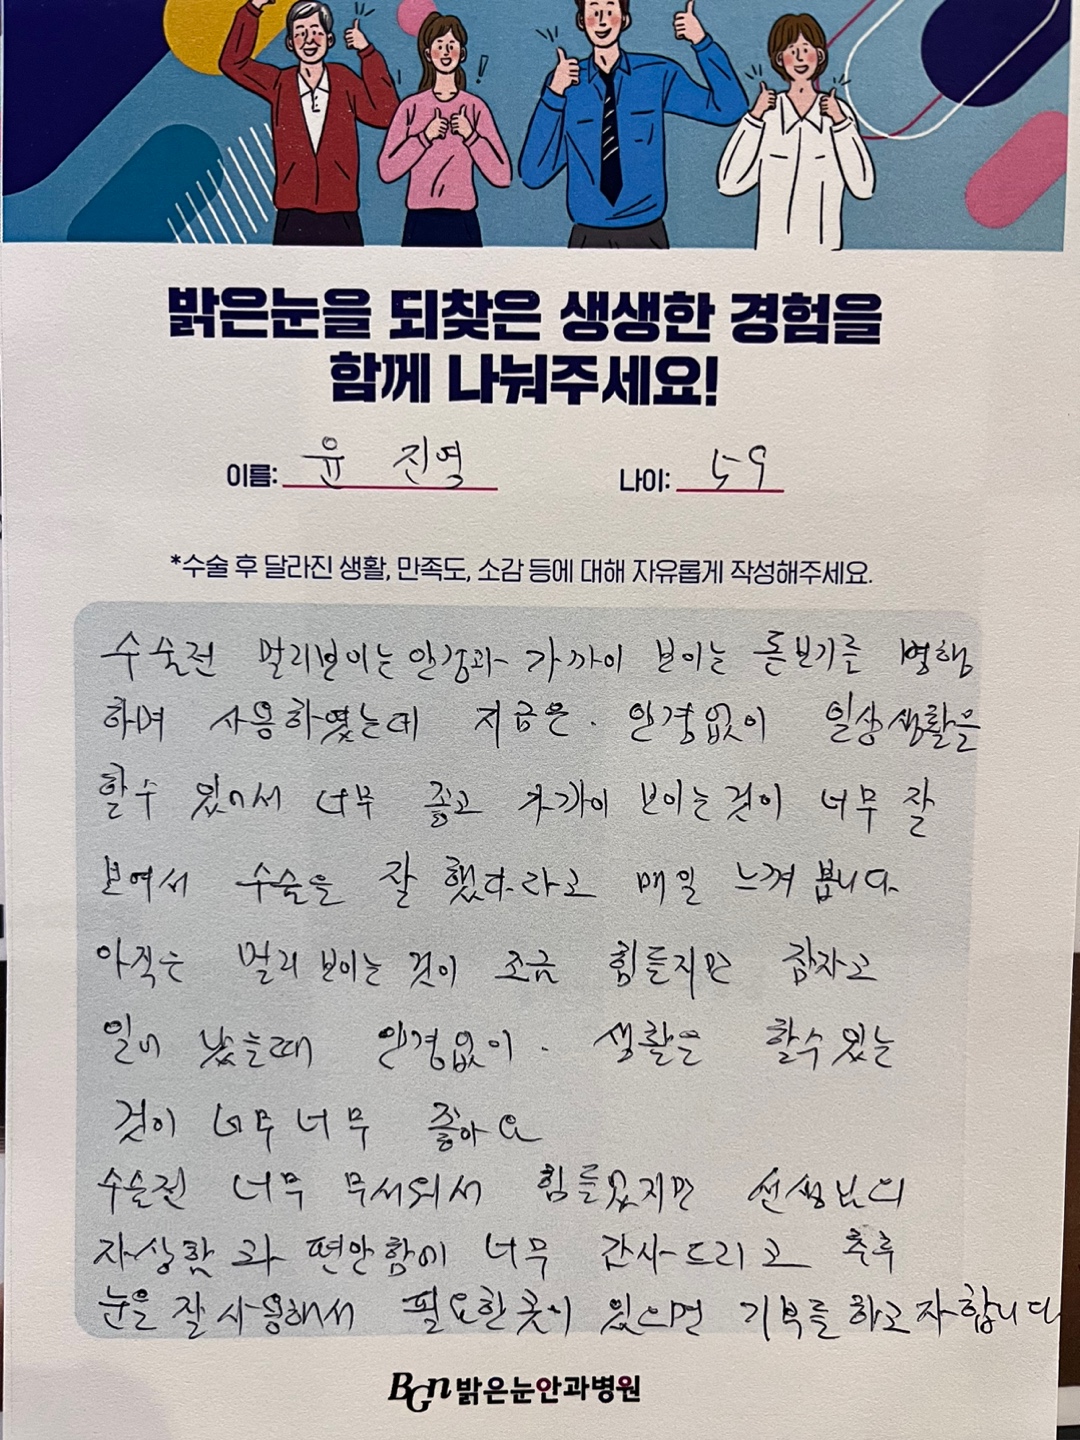 밝은눈을 되찾은 생생한 경험을
함께 나눠주세요!
이름: 윤 진영 나이: 59
*수술 후 달라진 생활, 만족도, 소감 등에 대해 자유롭게 작성해주세요.
수술전 멀리보이는 안경과 가까이 보이는 돋보기를 병행
하며 사용하였는데 지금은. 안경없이 일상생활을
할수 있어서 너무 좋고 가까이 보이는것이 너무 잘
보여서 수술을 잘 했다라고 매일 느껴 봅니다.
아직은 멀리 보이는 것이 조금 힘들지만 잠자고
일어 났을때 안경없이. 생활을 할수 있는
것이 너무 너무 좋아요
수술전 너무 무서워서 힘들었지만 선생님의
자상함과 편안함이 너무 감사드리고 추후
눈을 잘 사용해서 필요한 곳이 있으면 기부를 하고자합니다
BGN 밝은눈안과병원